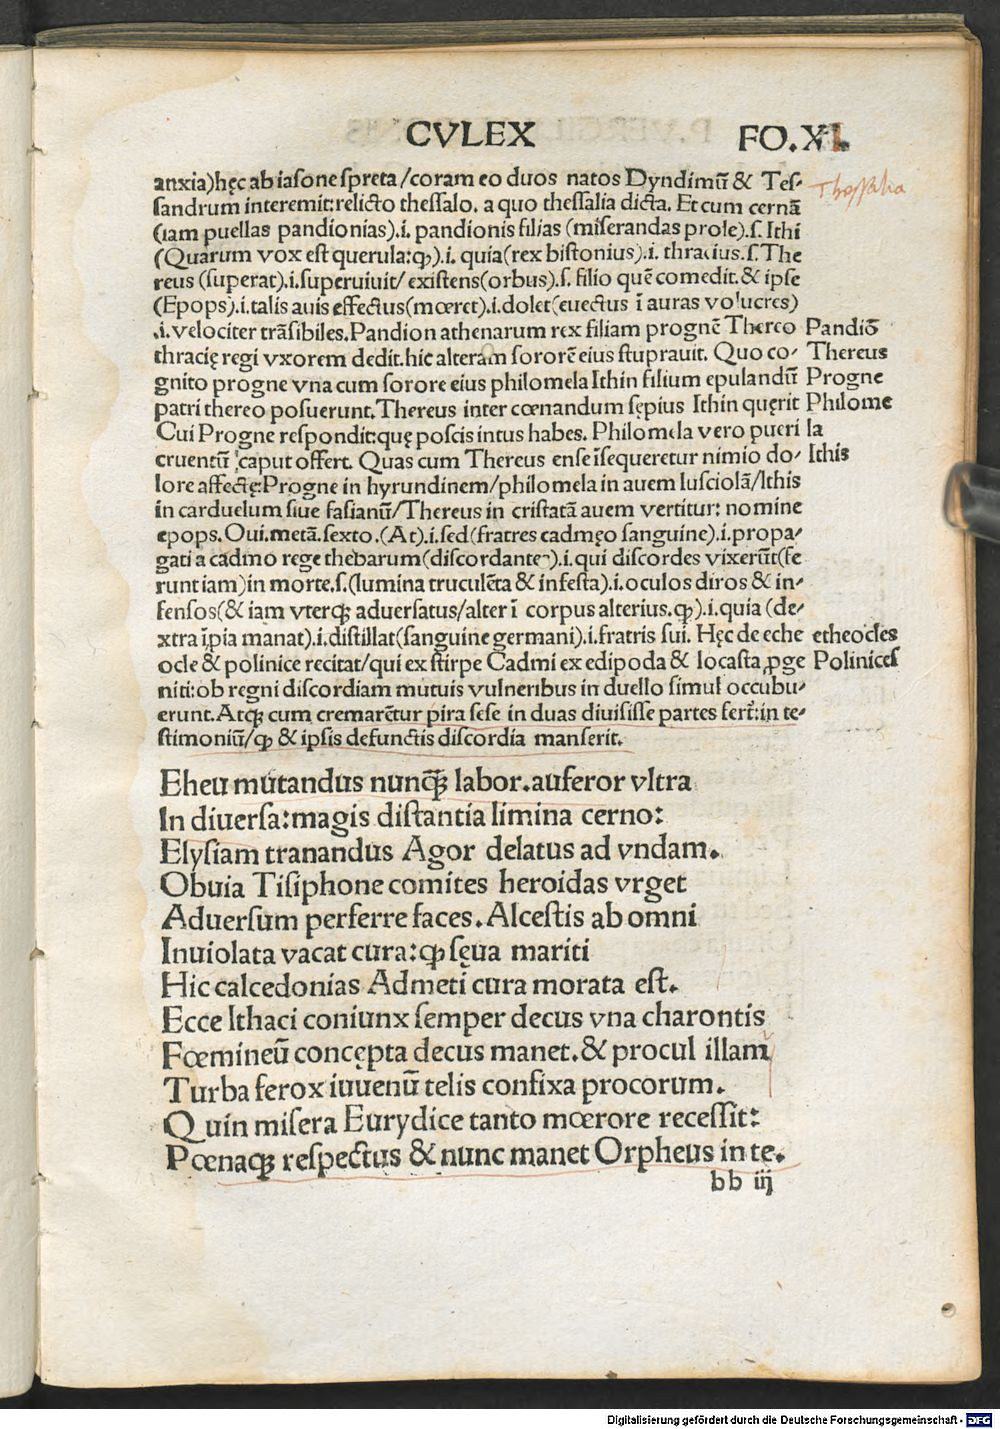 CVLEX FO.XI.
anxia)hęc ab iasone spreta/coram eo duos natos Dyndimū & Tes- Thessalia
sandrum interemit:relicto thessalo. a quo thessalia dicta. Et cum cernā
(iam puellas pandionias).i. pandionis filias (miserandas prole).s. Ithi
(Quarum vox est querula:ꝙ).i. quia(rex bistonius).i. thracius.s.The
reus (superat).i.superuiuit/ existens(orbus).s. filio quē comedit.& ipse
(Epops).i.talis auis effectus(mœret).i.dolet(euectus ī auras volucres)
.i.velociter trāsibiles.Pandion athenarum rex filiam prognē Thereo Pandiō
thracię regi vxorem dedit.hic alteram sororē eius stuprauit. Quo co- Thereus
gnito progne vna cum sorore eius philomela Ithin filium epulandū Progne
patri thereo posuerunt.Thereus inter cœnandum sępius Ithin quęrit Philome
Cui Progne respondit:quę poscis intus habes. Philomela vero pueri la
cruentū caput offert. Quas cum Thereus ense īsequeretur nimio do- Ithis
lore affectę:Progne in hyrundinem/philomela in auem lusciolā/Ithis
in carduelum siue fasianū/Thereus in cristatā auem vertitur: nomine
epops.Oui.metā.sexto.(At).i.sed(fratres cadmęo sanguine).i.propa-
gati a cadmo rege thebarum(discordantes).i.qui discordes vixerūt(fe
runt iam)in morte.s.(lumina truculēta & infesta).i.oculos diros & in-
fensos(& iam vterqꝫ aduersatus/alter ī corpus alterius.ꝙ).i.quia (de-
xtra īpia manat).i.distillat(sanguine germani).i.fratris sui. Hęc de eche etheocles
ocle & polinice recitat/qui ex stirpe Cadmi ex edipoda & Iocasta ꝓge Polinices
niti:ob regni discordiam mutuis vulneribus in duello simul occubu-
erunt.Atqꝫ cum cremarētur pira sese in duas diuisisse partes fert̄:in te-
stimoniū/ꝙ & ipsis defunctis discordia manserit.
Eheu mutandus nunq̄ꝫ labor.auferor vltra
In diuersa:magis distantia limina cerno:
Elysiam tranandus Agor delatus ad vndam.
Obuia Tisiphone comites heroidas vrget
Aduersum perferre faces.Alcestis ab omni
Inuiolata vacat cura:ꝙ sęua mariti
Hic calcedonias Admeti cura morata est.
Ecce Ithaci coniunx semper decus vna charontis
Fœmineū concępta decus manet.& procul illam
Turba ferox iuuenū telis confixa procorum.
Quin misera Eurydice tanto mœrore recessit:
Pœnaqꝫ respectus & nunc manet Orpheus in te.
bb iij
Digitalisierung gefördert durch die Deutsche Forschungsgemeinschaft - DFG